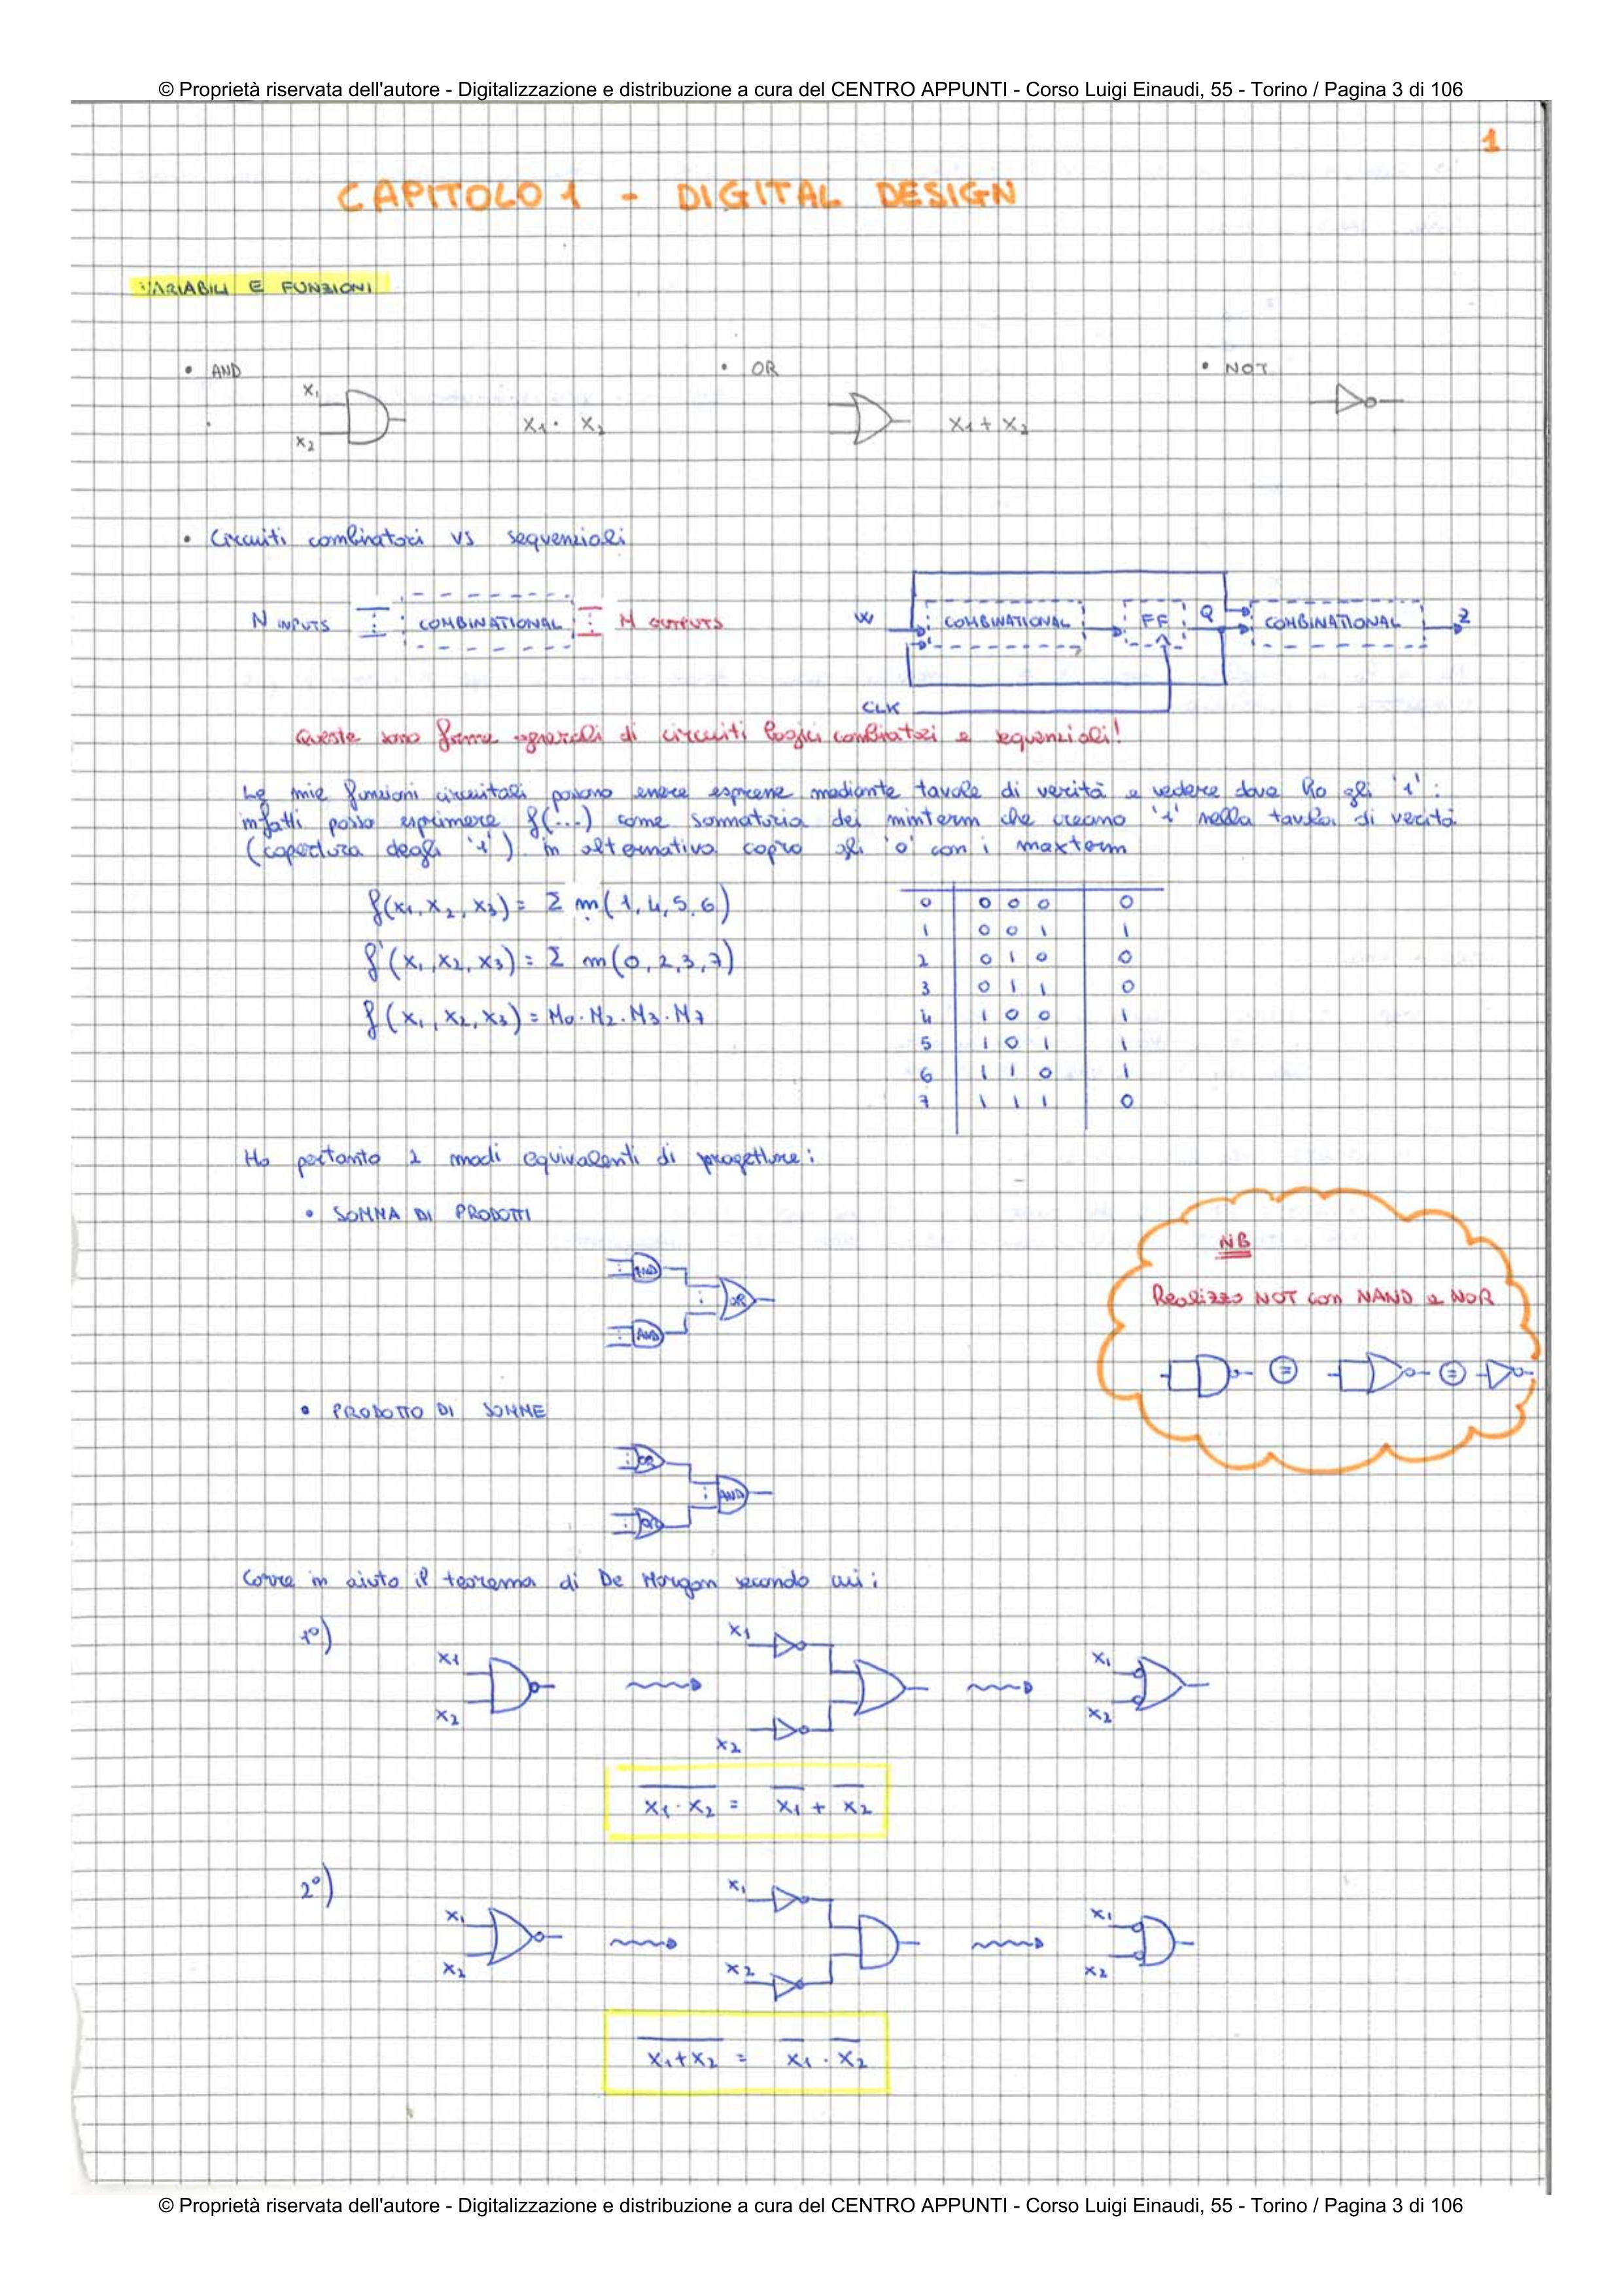 © Proprietà riservata dell'autore - Digitalizzazione e distribuzione a cura del CENTRO APPUNTI - Corso Luigi Einaudi, 55 - Torino / Pagina 3 di 106
1
CAPITOLO 1 - DIGITAL DESIGN
VARIABILI E FUNZIONI
• AND • OR • NOT
x₁
x₂
x₁ · x₂ x₁ + x₂
• Circuiti combinatori vs sequenziali
N INPUTS COMBINATIONAL M OUTPUTS
W COMBINATIONAL FF Q COMBINATIONAL Z
CLK
Queste sono forme generali di circuiti logici combinatori e sequenziali!
Le mie funzioni circuitali possono essere espresse mediante tavole di verità e vedere dove ho gli '1' :
infatti posso esprimere f(...) come sommatoria dei minterm che creano '1' nella tavola di verità
(copertura degli '1') in alternativa copro gli '0' con i maxterm
f(x₁, x₂, x₃) = Σ m(1,4,5,6)
f'(x₁, x₂, x₃) = Σ m(0,2,3,7)
f(x₁, x₂, x₃) = M₀·M₂·M₃·M₇
0 0 0 0 0
1 0 0 1 1
2 0 1 0 0
3 0 1 1 0
4 1 0 0 1
5 1 0 1 1
6 1 1 0 1
7 1 1 1 0
Ho pertanto 2 modi equivalenti di progettare:
• SOMMA DI PRODOTTI
AND
OR
AND
NB
Realizzo NOT con NAND e NOR
= =
• PRODOTTO DI SOMME
OR
AND
OR
Corre in aiuto il teorema di De Morgan secondo cui:
1°)
x₁ x₁ x₁
x₂ x₂ x₂
x̅₁̅ ̅·̅ ̅x̅₂̅ = x̅₁ + x̅₂
2°)
x₁ x₁ x₁
x₂ x₂ x₂
x̅₁̅ ̅+̅ ̅x̅₂̅ = x̅₁ · x̅₂
© Proprietà riservata dell'autore - Digitalizzazione e distribuzione a cura del CENTRO APPUNTI - Corso Luigi Einaudi, 55 - Torino / Pagina 3 di 106